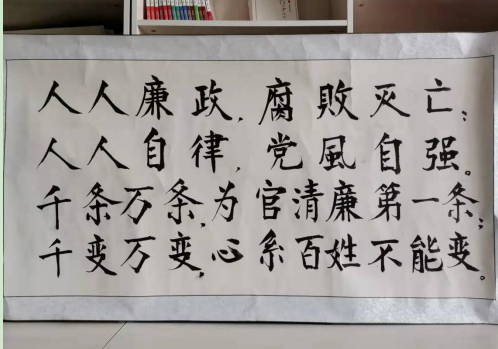 人人廉政,腐败灭亡;
人人自律,党風自强。
千条万条,为官清廉第一条;
千变万变,心系百姓不能变。